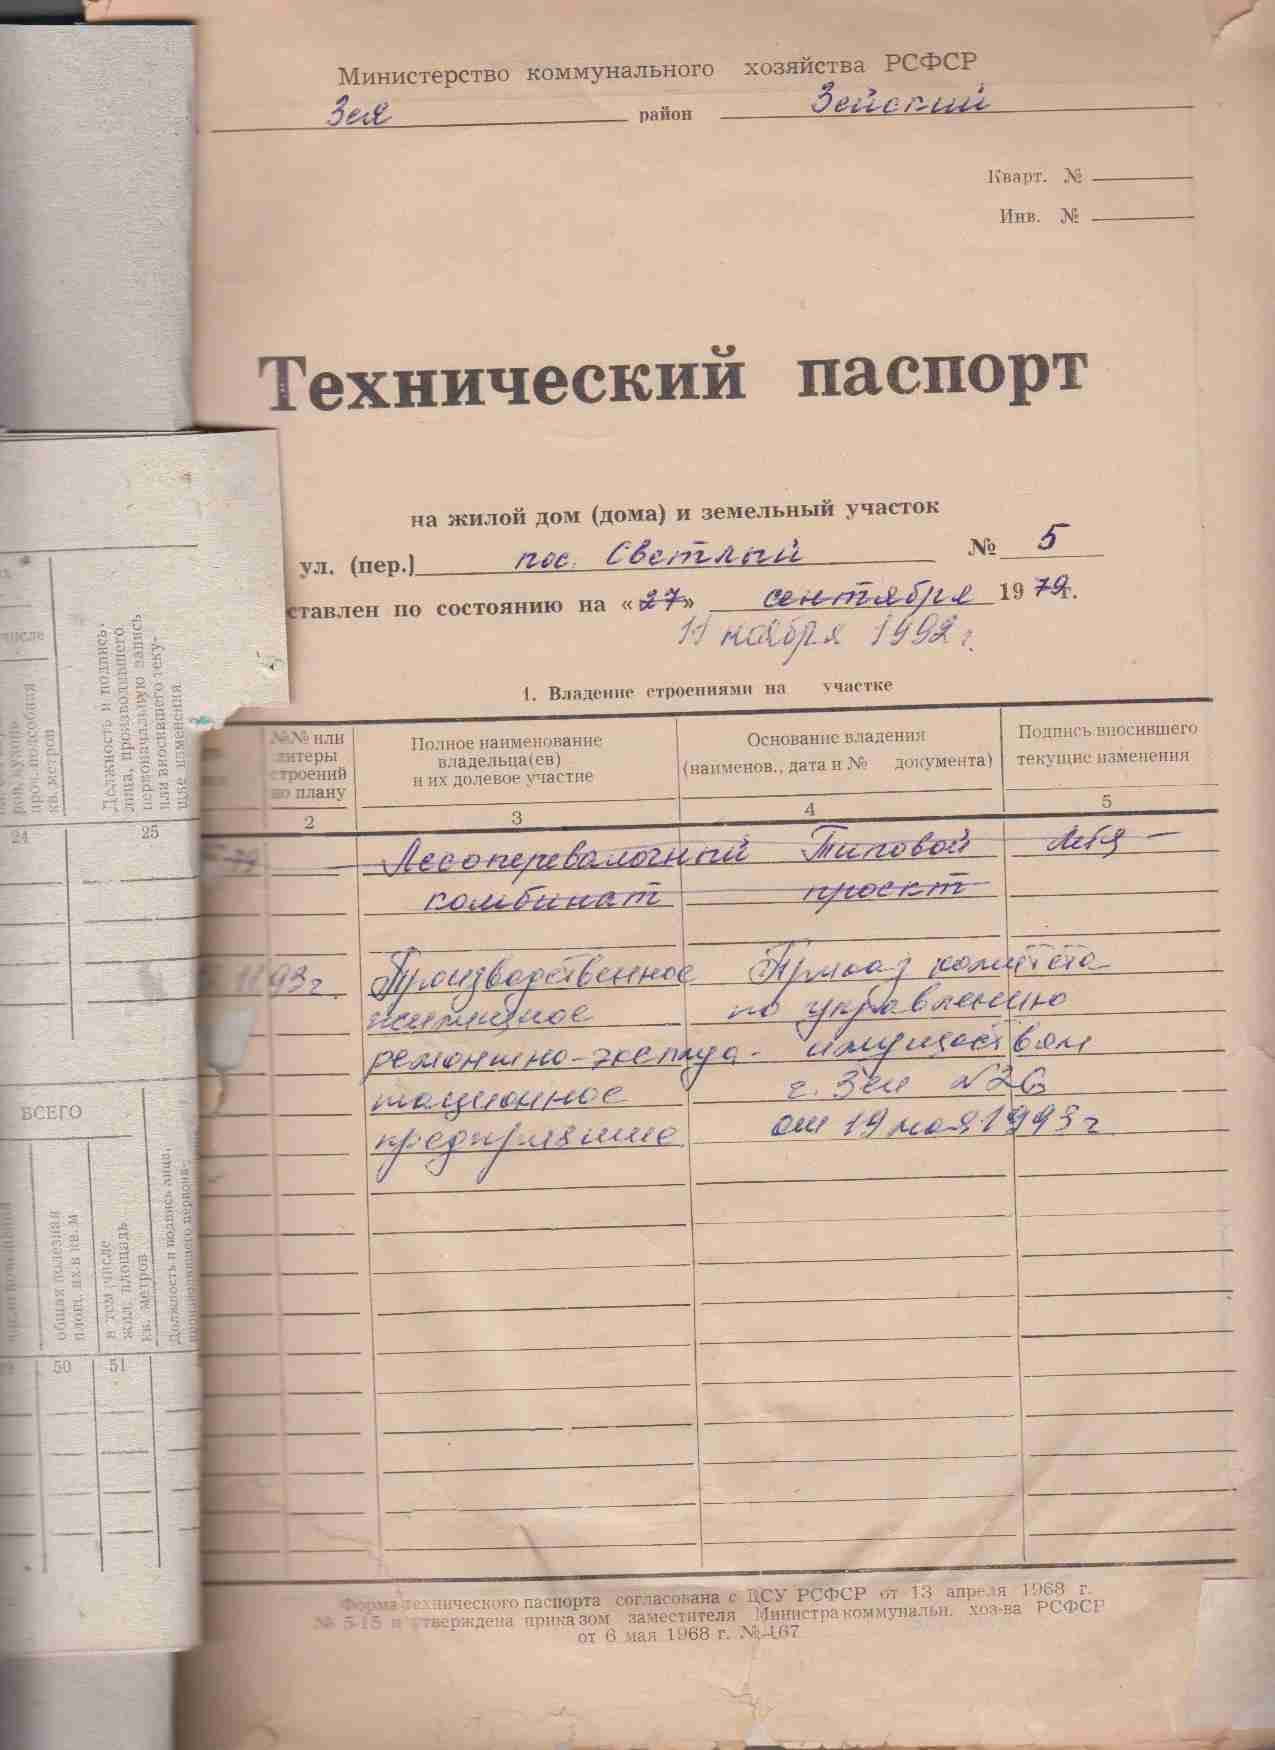 Министерство коммунального хозяйства РСФСР
Зея район Зейский
Кварт. №
Инв. №
Технический паспорт
на жилой дом (дома) и земельный участок
ул. (пер.) пос. Светлый № 5
ставлен по состоянию на «27» сентября 1979г.
11 ноября 1992 г.
1. Владение строениями на участке
№№ или литеры строений по плану
Полное наименование владельца(ев) и их долевое участие
Основание владения (наименов., дата и № документа)
Подпись вносившего текущие изменения
2 3 4 5
79 Лесоперевалочный Типовой
комбинат проект
11 93г. Производственное Приказ комитета
жилищное по управлению
ремонтно-эксплуа- имуществом
тационное г. Зеи №26
предприятие от 19 мая 1993г
Форма технического паспорта согласована с ЦСУ РСФСР от 13 апреля 1968 г.
№ 5-15 и утверждена приказом заместителя Министра коммунальн. хоз-ва РСФСР
от 6 мая 1968 г. № 167
числе
проч. подсобная
кв. метров
Должность и подпись
лица, производившего
первоначальную запись
или вносившего теку-
щие изменения
24 25
ВСЕГО
общая полезная
площ. их в кв. м
в том числе
жил. площадь
кв. метров
Должность и подпись лица,
50 51